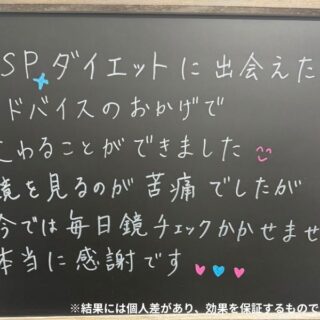 SPダイエットに出会えた
ドバイスのおかげで
わることができました
鏡を見るのが苦痛でしたが
今では毎日鏡チェックかかせませ
本当に感謝です
※結果には個人差があり、効果を保証するもので